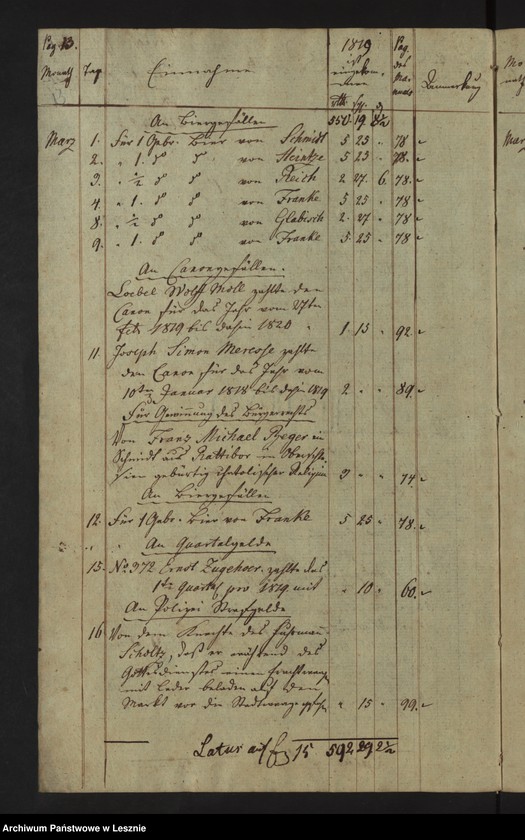 Pag 13.
Monath Tag Einnahme 1819 ist eingekommen Pag. des Manuals Anmerkung
Rtl. Sg. d
An Biergefällen 550 19 8½
Marz 1. Für 1 Gebr. Bier von Schmidt 5 25 " 78
2. " 1. do do von Heintze 5 25 " 78.
3. " ½ do do von Reich 2 27 6. 78.
4. " 1. do do von Franke 5 25 " 78
8. " ½ do do von Glabisch 2 27 " 78
9. " 1. do do von Franke 5 25 " 78
An Canongefällen.
Loebel Wolff Moll zahlte den
Canon für das Jahr vom 27ten
Feb. 1819 bis dahin 1820 " 1 15 " 92.
11. Joseph Simon Merosse zahlte
den Canon für das Jahr vom
10ten Januar 1818 bis dahin 1819 2 " " 89.
Für Gewinnung des Bürgerrechts
Von Franz Michael Beger in
Schmidt aus Rattibor in Oberschle-
sien gebürtig catholischer Religion 3 " " 74.
An Biergefällen
12. Für 1 Gebr. Bier von Franke 5 25 " 78.
An Quartalgelde
15. No 372 Ernst Zugehoer zahlte das
1te Quartal pro 1819 mit " 10 " 60.
An Polizei Strafgelde
16 Von dem Knechte des Fuhrmann
Scholtz, daß er während des
Gottesdienstes einen Frachtwagen
mit Leder beladen auf den
Markt vor die Stadtwaage " 15 " 99.
Latus auf 15 592 29 2½
März
Archiwum Państwowe w Lesznie